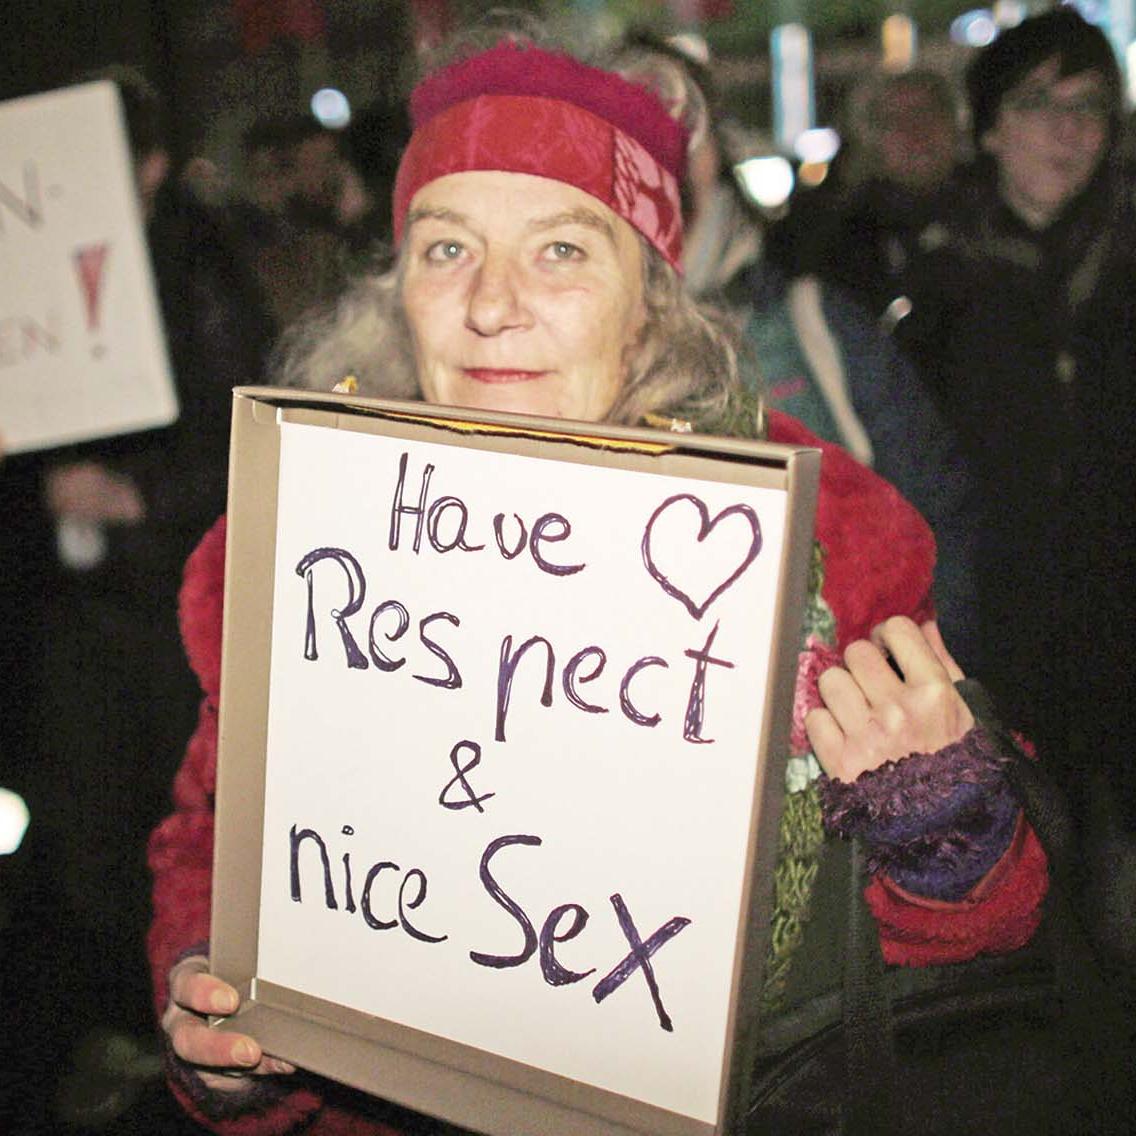 Have
Respect
&
nice Sex
N-
EN!